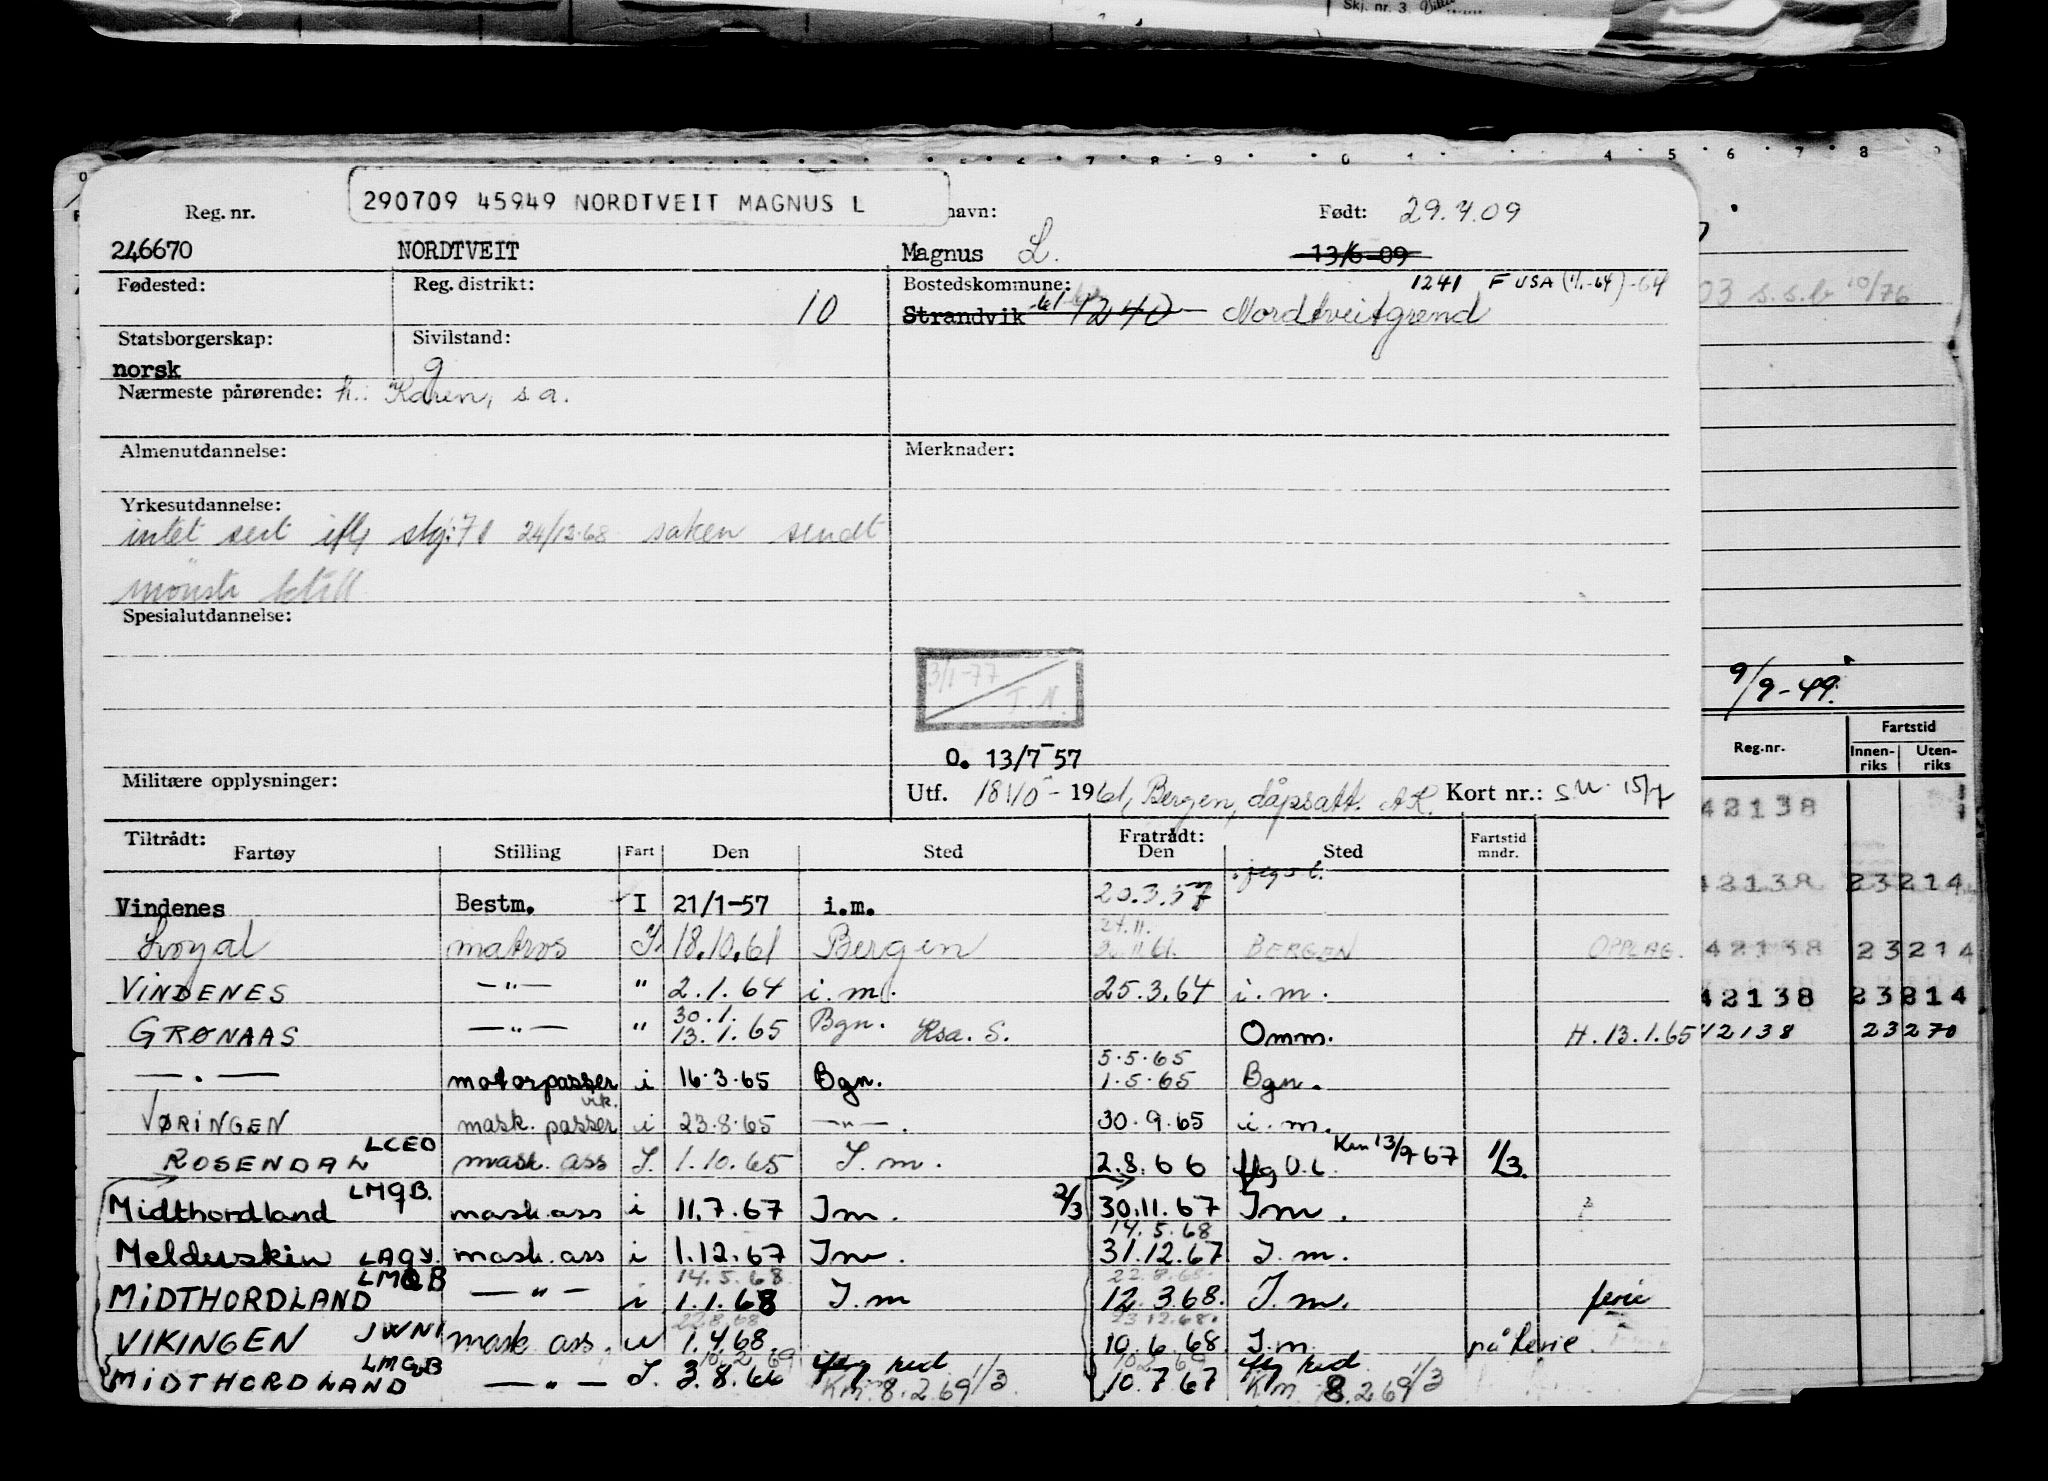 Skj. nr. 3.
290709 45949 NORDTVEIT MAGNUS L
Reg. nr. navn: Født: 29.7.09
246670 NORDTVEIT Magnus L. 13/6-09
Fødested: Reg. distrikt: 10 Bostedskommune: 1241 F USA (1/1-64) -64
Strandvik 1240 Nordtveitgrend
03 s.s.b 10/76
Statsborgerskap: Sivilstand:
norsk g
Nærmeste pårørende: h.: Karen, s.a.
Almenutdannelse: Merknader:
Yrkesutdannelse:
intet sert iflg skj: 71 24/12-68 saken sendt
mønstr ktr
Spesialutdannelse:
3/1-77
T.N.
9/9-49.
O. 13/7-57
Militære opplysninger: Utf. 18/10-1961, Bergen, dåpsatt. AK. Kort nr.: S.U. 15/7
Reg.nr. Fartstid
Innen-riks Uten-riks
42138
Tiltrådt: Fratrådt:
Fartøy Stilling Fart Den Sted Den Sted Fartstid mndr.
Vindenes Bestm. I 21/1-57 i.m. 20.3.57 42138 23214
27.11.
Loyal matros I. 18.10.61 Bergen 2.11.61. BERGEN OPPLAG. 42138 23214
VINDENES —"— " 2.1.64 i.m. 25.3.64 i.m. 42138 23214
30.1.
GRØNAAS —"— " 13.1.65 Bgn. Rsa. S. Omm. H. 13.1.65 42138 23270
5.5.65
—.— motorpasser i 16.3.65 Bgn. 1.5.65 Bgn.
VØRINGEN mask. passer vik. i 23.8.65 —"—. 30.9.65 i.m.
ROSENDAL LCEO mask. ass I. 1.10.65 I.m. 2.8.66 flg O.L. Km 13/9 67 1/3.
Midthordland LMQB. mask.ass i 11.7.67 Im. 2/3 30.11.67 Im.
14.5.68
Melderskin LAQY. mask.ass i 1.12.67 Im. 31.12.67 I.m.
14.5.68 22.8.68.
MIDTHORDLAND LMQB —"— i 1.1.68 I.m 12.3.68. I.m. ferie
22.8.68 23.12.68.
VIKINGEN JWNI mask ass. u 1.4.68. 10.6.68 I.m. på ferie.
10.2.69 10.2.69
MIDTHORDLAND LMQB —"— I. 3.8.66 flg red 10.7.67 flg red
Km. 8.2.69 1/3. Km 8.2.69 1/3